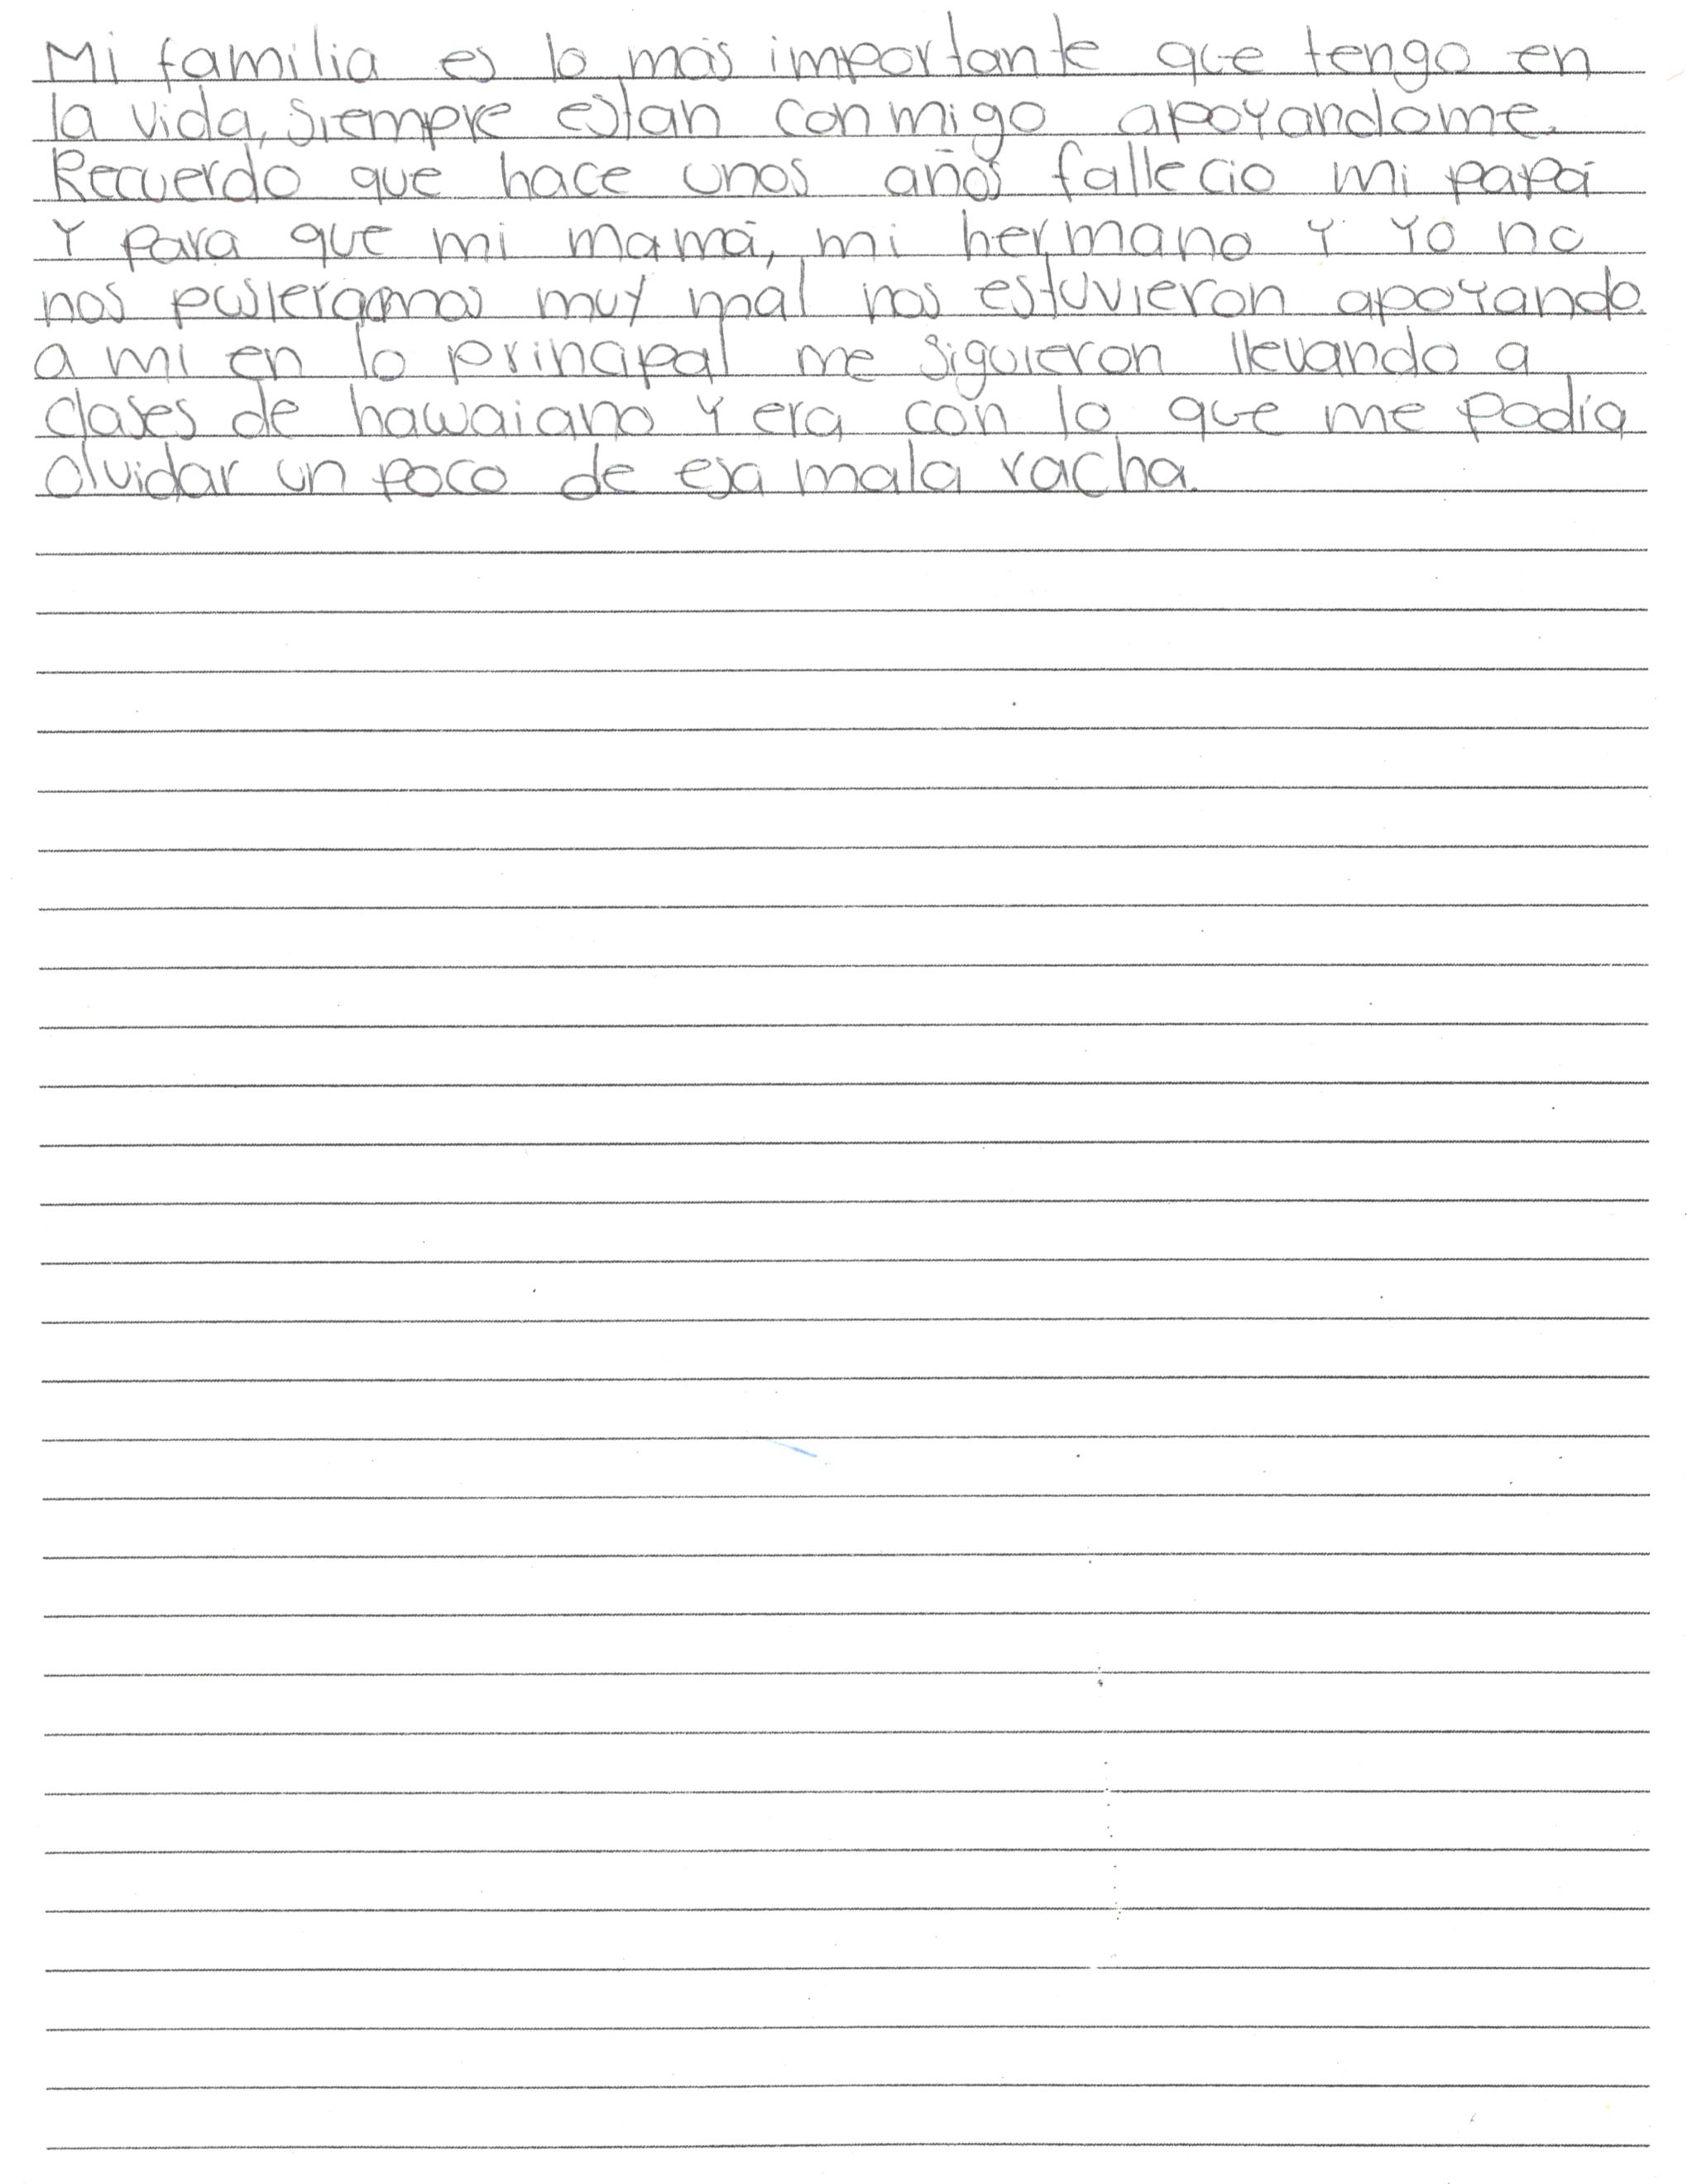 Mi familia es lo más importante que tengo en
la vida, siempre estan conmigo apoyandome.
Recuerdo que hace unos años fallecio mi papá
Y para que mi mamá, mi hermano Y Yo no
nos pusieramos muy mal nos estuvieron apoyando.
a mi en lo principal me siguieron llevando a
clases de hawaiano Y era con lo que me podía
olvidar un poco de esa mala racha.